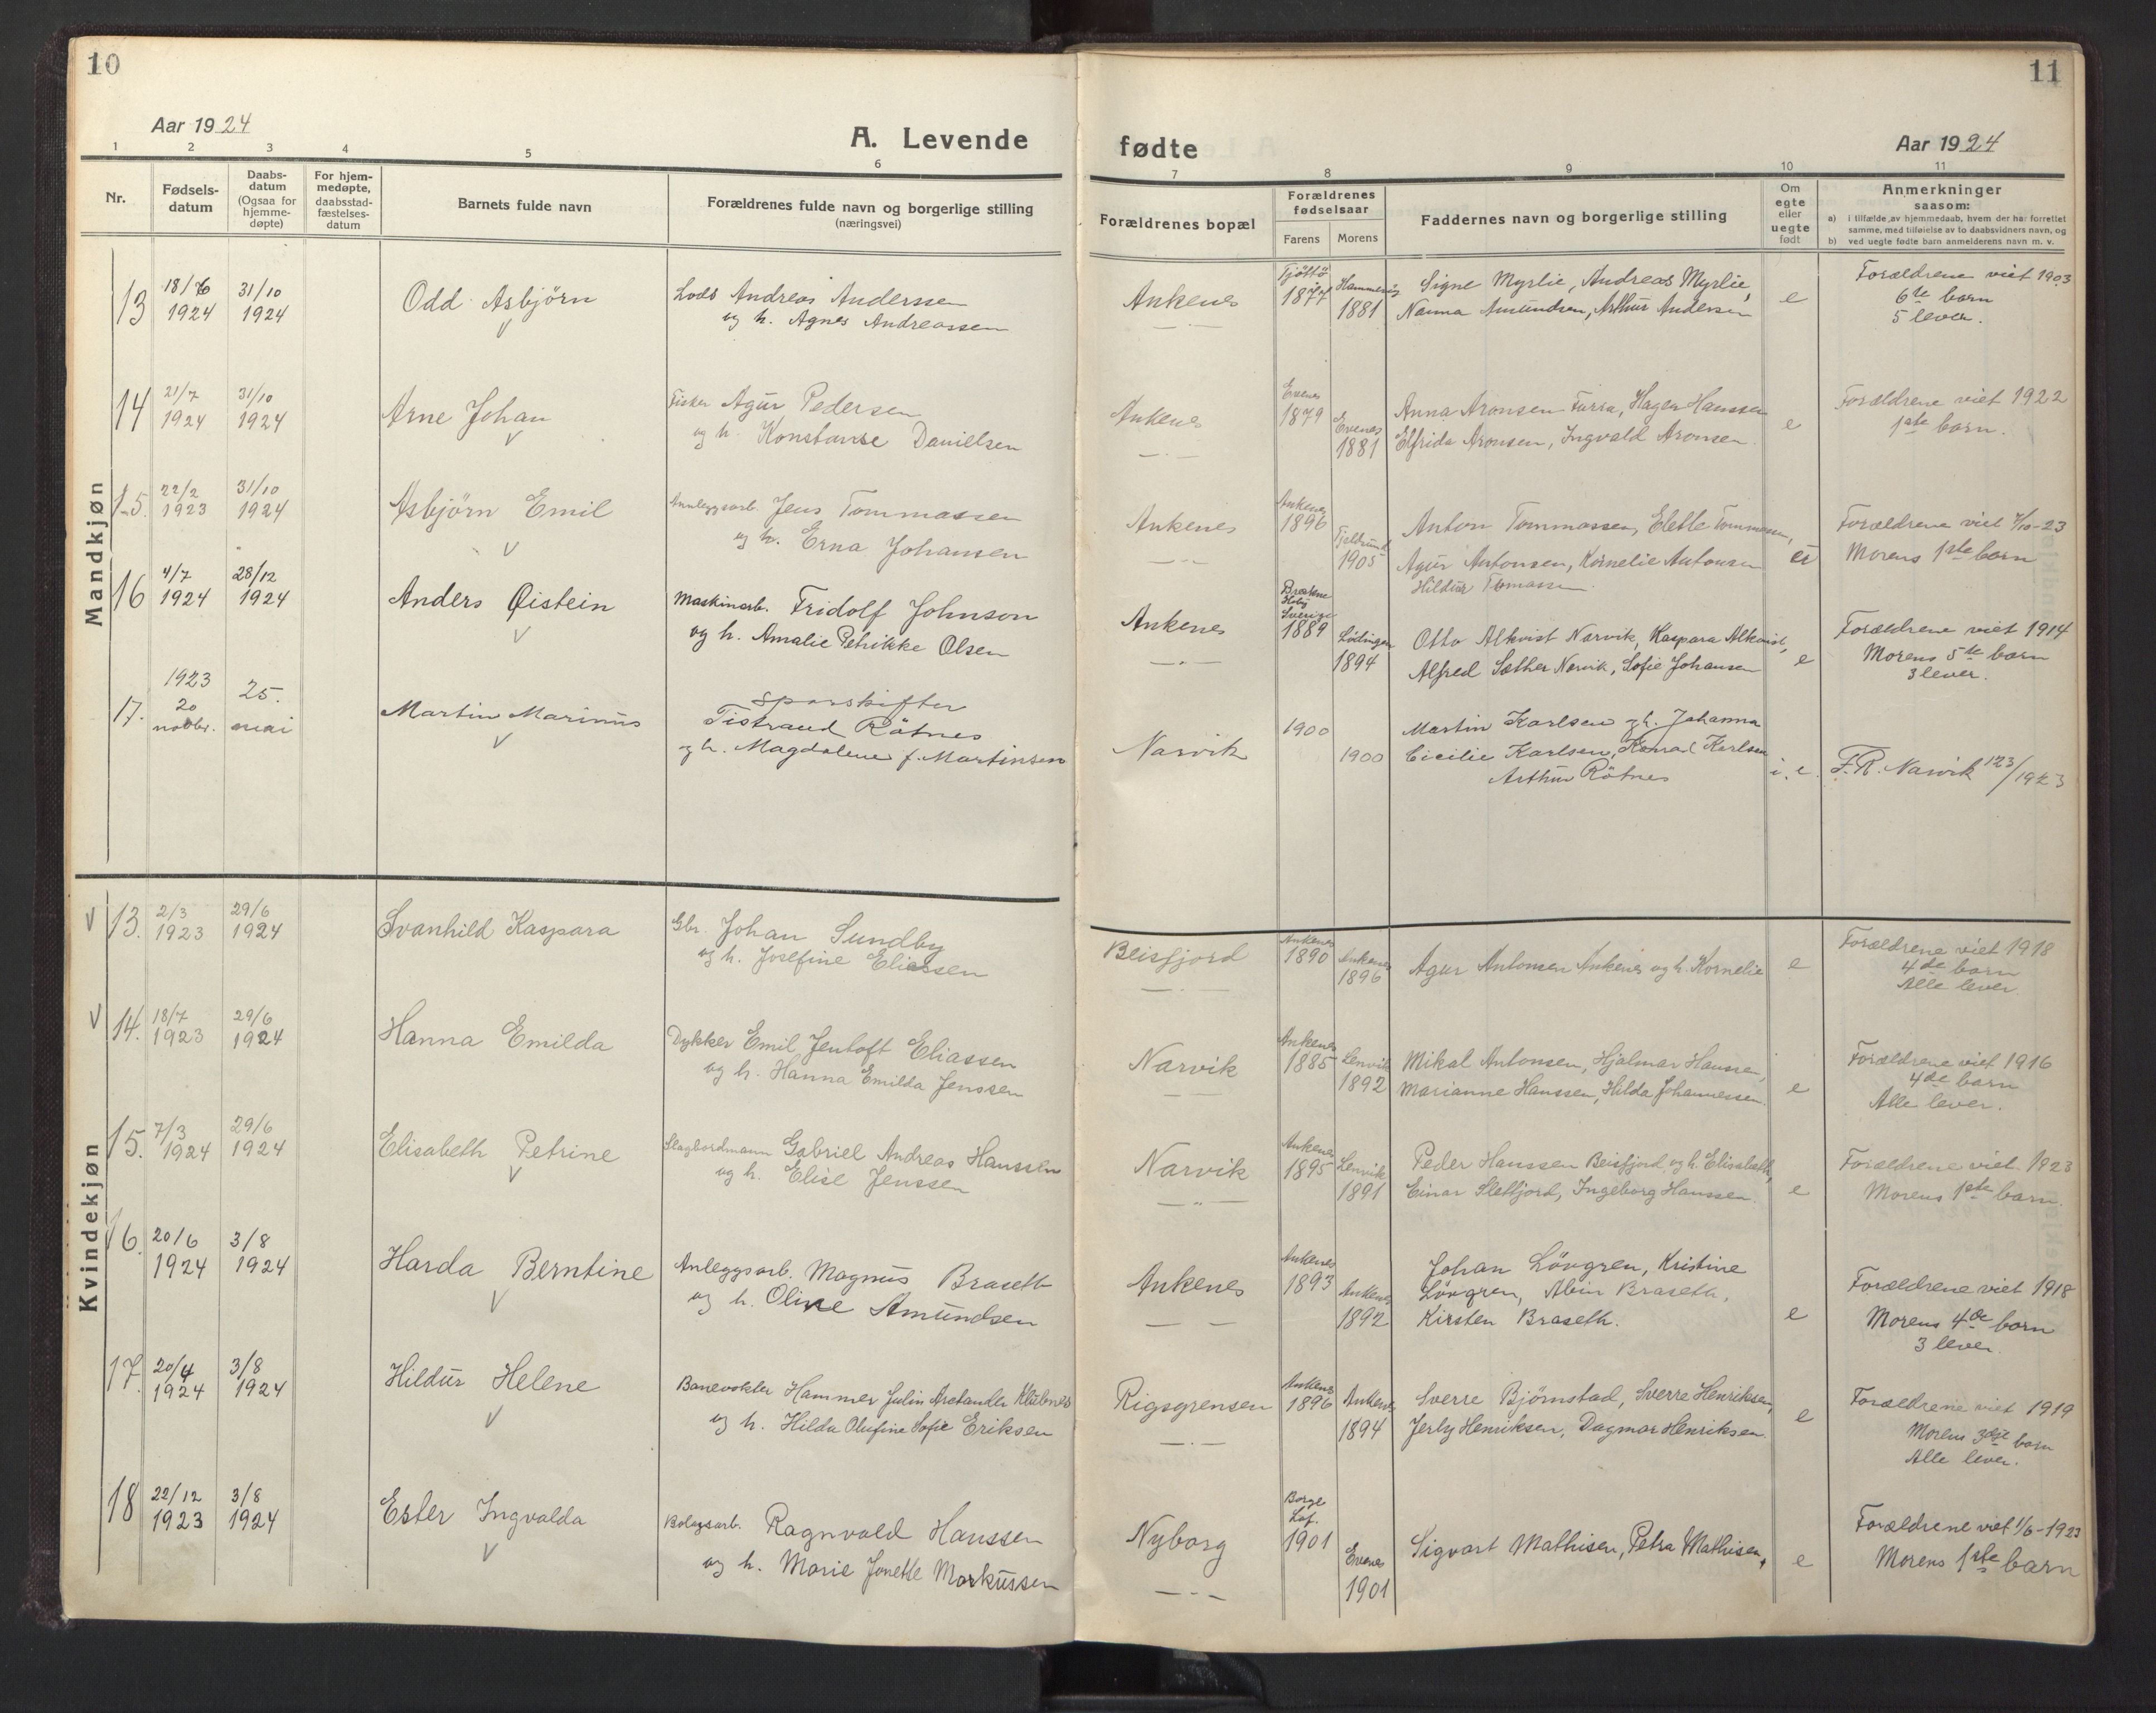 10
Aar 1924
A. Levende
1 2 3 4 5 6
Nr.
Fødsels-
datum
Daabs-
datum
(Ogsaa for
hjemme-
døpte)
For hjem-
medøpte,
daabsstad-
fæstelses-
datum
Barnets fulde navn
Forældrenes fulde navn og borgerlige stilling
(næringsvei)
Mandkjøn
13 18/6 31/10
1924 1924
Odd Asbjörn
Lods Andreas Anderssen
og h. Agnes Andreassen
14 21/7 31/10
1924 1924
Arne Johan
Fisker Agur Pedersen
og h. Konstanse Danielsen
15. 22/2 31/10
1923 1924
Asbjörn Emil
Annleggsarb. Jens Tommassen
og h. Erna Johansen
16 4/7 28/12
1924 1924
Anders Øistein
Maskinarb. Fridolf Johnson
og h. Amalie Petrikke Olsen
17. 1923
20 25.
novbr. mai
Martin Marinus
Sporskifter
Tistrand Rötnes
og h. Magdalene f. Martinsen
Kvindekjøn
V 13. 2/3 29/6
1923 1924
Svanhild Kaspara
Gbr. Johan Sundby
og h. Josefine Eliassen
V 14. 18/7 29/6
1923 1924
Hanna Emilda
Dykker Emil Jentoft Eliassen
og h. Hanna Emilda Jenssen
15. 7/3 29/6
1924 1924
Elisabeth Petrine
Slagbordmann Gabriel Andreas Hanssen
og h. Elise Jenssen
16. 20/6 3/8
1924 1924
Harda Berntine
Anleggsarb. Magnus Braseth
og h. Oline Amundsen
17. 20/4 3/8
1924 1924
Hildur Helene
Banevokter Hammer Julin Arstander Klubnes
og h. Hilda Olufine Sofie Eriksen
18 22/12 3/8
1923 1924
Ester Ingvalda
Bolagsarb. Ragnvald Hanssen
og h. Marie Jonette Markussen
11
fødte
Aar 1924
7 8 9 10 11
Forældrenes bopæl
Forældrenes
fødselsaar
Farens Morens
Faddernes navn og borgerlige stilling
Om
egte
eller
uegte
født
Anmerkninger
saasom:
a) i tilfælde av hjemmedaab, hvem der har forrettet
samme, med tilføielse av to daabsvidners navn, og
b) ved uegte fødte barn anmelderens navn m. v.
Ankenes
Tjöttö
1877
Hammerøy
1881
Signe Myrlie, Andreas Myrlie,
Nanna Amundsen, Arthur Andersen
e
Forældrene viet 1903
6te barn
5 lever.
Ankenes
Evenes
1879
Evenes
1881
Anna Aronsen Furra, Hagen Hanssen
Elfrida Aronsen, Ingvald Aronsen
e
Forældrene viet 1922
1ste barn.
Ankenes
Ankenes
1896
1905
Anton Tommassen, Elette Tommesen,
Agur Antonsen, Kornelie Antonsen
Hildur Tomassen
Forældrene viet 7/10-23
Morens 1ste barn
Ankenes
Sverige
1889
Lödingen
1894
Otto Alkvist Narvik, Kaspara Alkvist,
Alfred Sæther Narvik, Sofie Johansen
e
Forældrene viet 1914
Morens 5te barn
3 lever.
Narvik
1900
1900
Martin Karlsen og h. Johanna
Cicilie Karlsen, Konrad Karlsen
Arthur Rötnes
i. e.
F.R. Narvik 123/1923
Beisfjord
Ankenes
1890
Ankenes
1896
Agur Antonsen Ankenes og h. Kornelie
e
Forældrene viet 1918
4de barn
Alle lever.
Narvik
Ankenes
1885
Lenvik
1892
Mikal Antonsen, Hjalmar Hanssen,
Marianne Hanssen, Hilda Johannessen.
e
Forældrene viet 1916
4de barn
Alle lever.
Narvik
Ankenes
1895
Lenvik
1891
Peder Hanssen Beisfjord og h. Elisabeth,
Einar Sletfjord, Ingeborg Hanssen.
e
Forældrene viet 1923
Morens 1ste barn.
Ankenes
Ankenes
1893
Ankenes
1892
Johan Lövgren, Kristine
Lövgren, Abin Braseth,
Kirsten Braseth.
e
Forældrene viet 1918
Morens 4de barn
3 lever.
Rigsgrensen
Ankenes
1896
Ankenes
1894
Sverre Björnstad, Sverre Henriksen,
Jerly Henriksen, Dagmar Henriksen.
e
Forældrene viet 1919
Morens 3die barn
Alle lever.
Nyborg
Borge
Lof.
1901
Evenes
1901
Sigvart Mathisen, Petra Mathisen,
e
Forældrene viet 1/6-1923
Morens 1ste barn